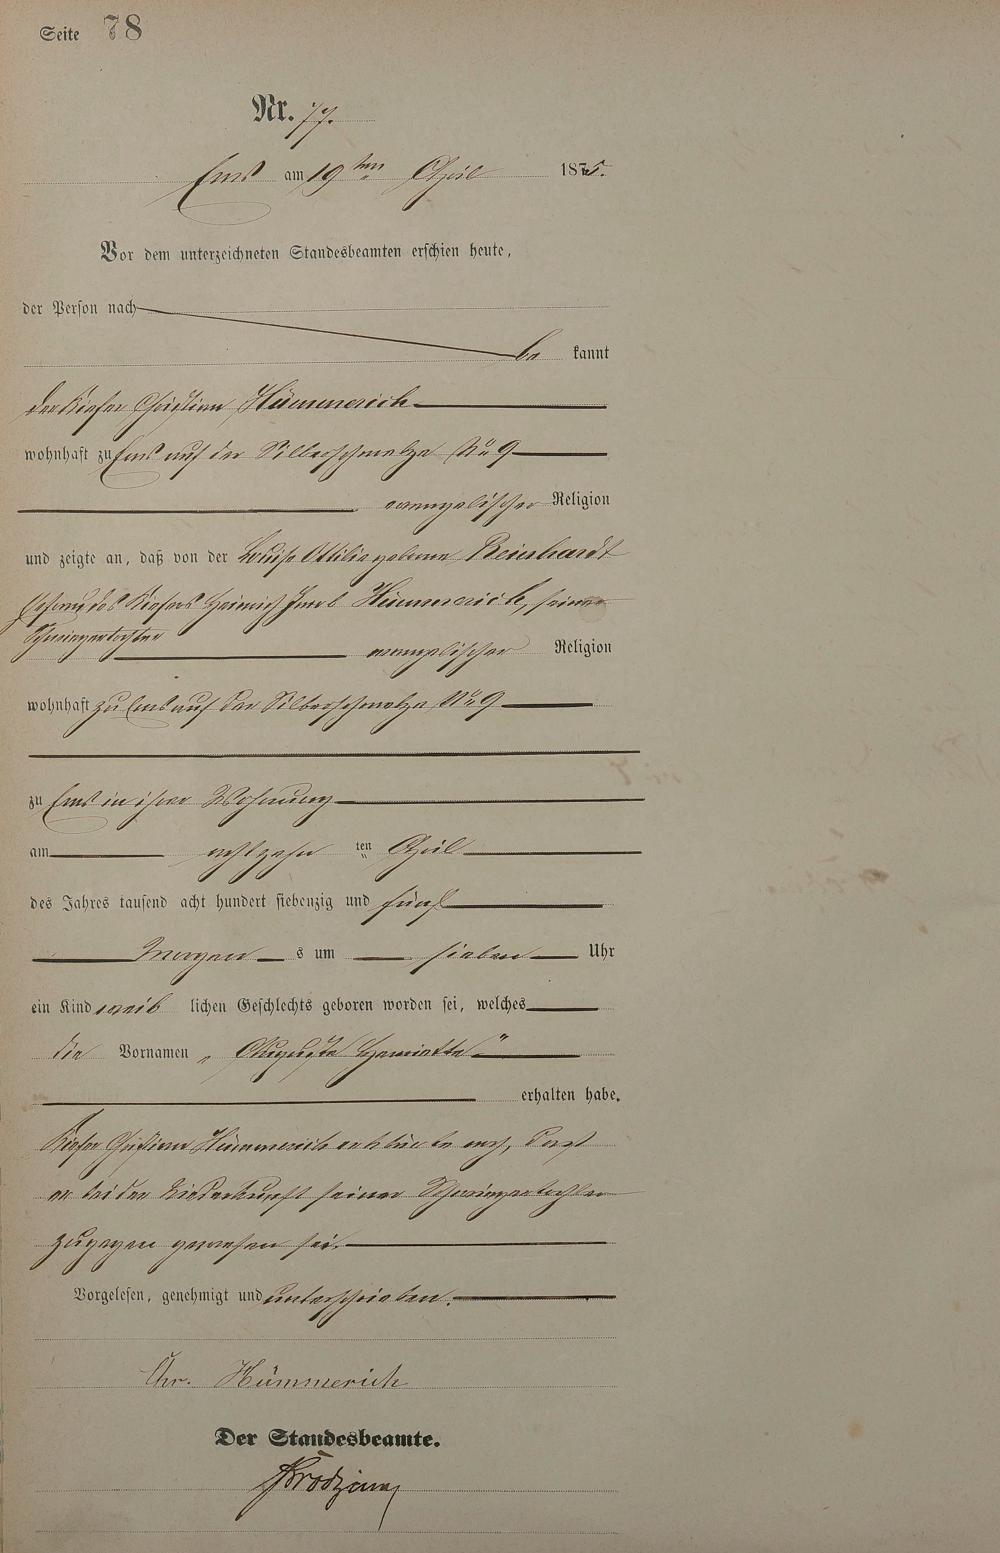 Seite 78
Nr. 77.
Ems am 19ten April 1875.
Vor dem unterzeichneten Standesbeamten erschien heute,
der Person nach
be kannt
der Kiefer Christian Hümmerich
wohnhaft zu Ems auf der Silberschmelze No 9
evangelischer Religion
und zeigte an, daß von der Louise Ottilie geborne Reinhardt
Ehefrau des Kiefers Heinrich Jacob Hümmerich, seiner
Schwiegertochter
evangelischer Religion
wohnhaft zu Ems auf der Silberschmelze No 9
zu Ems in ihrer Wohnung
am achtzehn ten April
des Jahres tausend acht hundert siebenzig und fünf
Morgen s um sieben Uhr
ein Kind weib lichen Geschlechts geboren worden sei, welches
die Vornamen „Auguste Henriette"
erhalten habe.
Kiefer Christian Hümmerich erklärte noch, dass
er bei der Niederkunft seiner Schwiegertochter
zugegen gewesen sei.
Vorgelesen, genehmigt und unterschrieben.
Chr. Hümmerich
Der Standesbeamte.